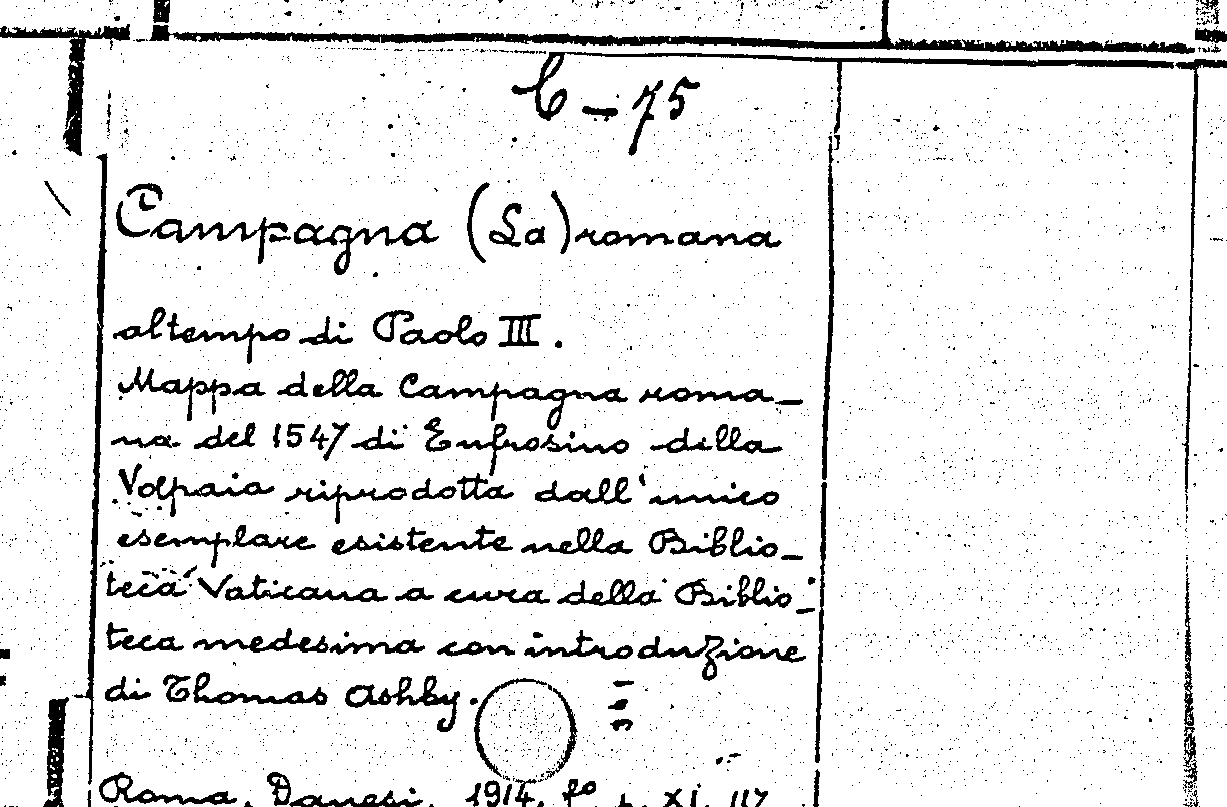 C-75
Campagna (La) romana
al tempo di Paolo III.
Mappa della Campagna roma-
na del 1547 di Eufrosino della
Volpaia riprodotta dall'unico
esemplare esistente nella Biblio-
teca Vaticana a cura della Biblio-
teca medesima con introduzione
di Thomas Ashby.
Roma, Danesi, 1914, fº XI. 117